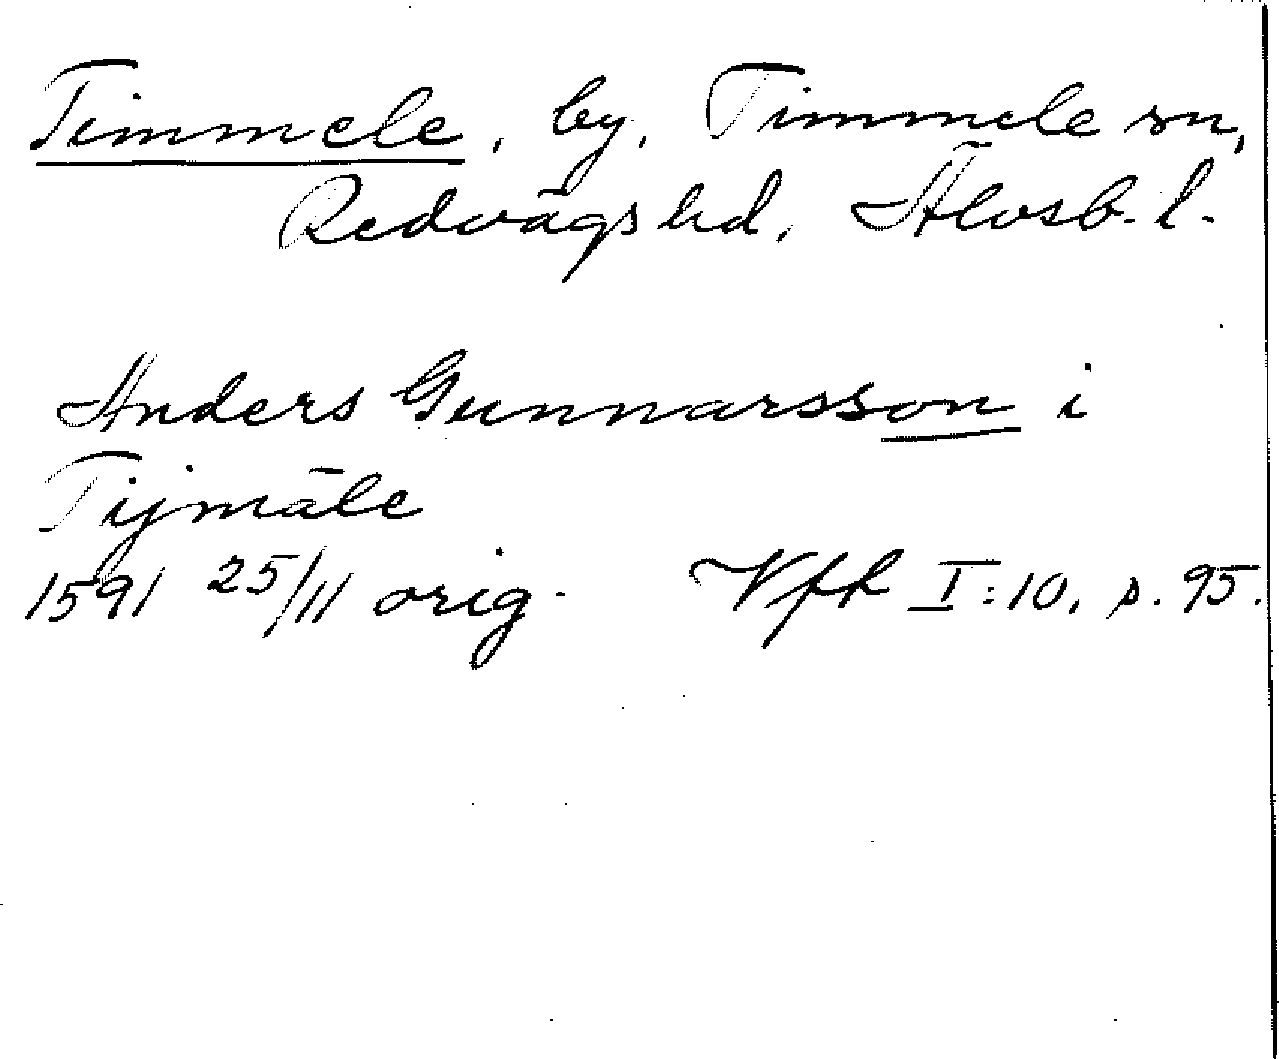 Timmele, by, Timmele sn,
Redvägs hd, Älvsb. l.
Anders Gunnarsson i
Tijmäle
1591 25/11 orig. Vfh I:10, s. 95.